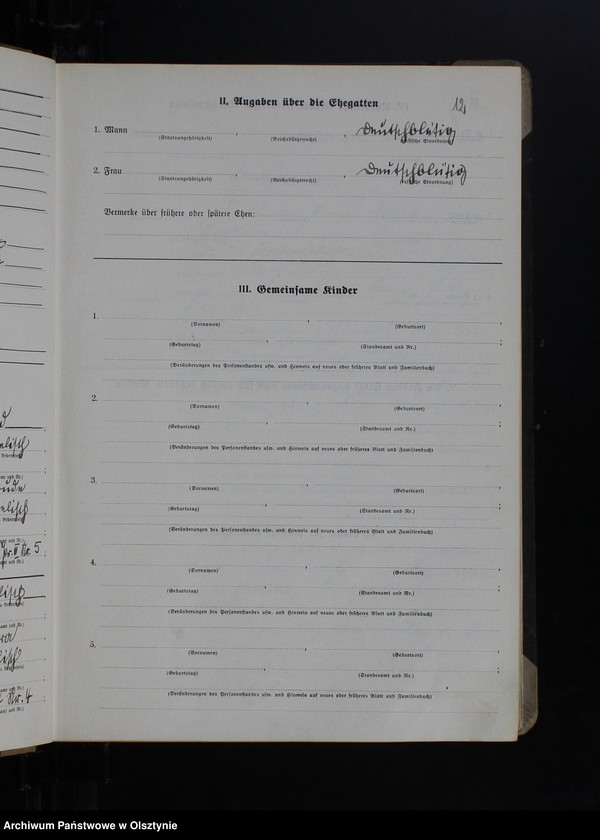 II. Angaben über die Ehegatten
12
1. Mann , , deutschblütig
(Staatsangehörigkeit) (Reichsbürgerrecht) (rassische Einordnung)
2. Frau , , deutschblütig
(Staatsangehörigkeit) (Reichsbürgerrecht) (rassische Einordnung)
Vermerke über frühere oder spätere Ehen:
III. Gemeinsame Kinder
1.
(Vornamen) , (Geburtsort) ,
(Geburtstag) , (Standesamt und Nr.) ;
(Veränderungen des Personenstandes usw. und Hinweis auf neues oder früheres Blatt und Familienbuch)
2.
(Vornamen) , (Geburtsort) ,
(Geburtstag) , (Standesamt und Nr.) ;
(Veränderungen des Personenstandes usw. und Hinweis auf neues oder früheres Blatt und Familienbuch)
3.
(Vornamen) , (Geburtsort) ,
(Geburtstag) , (Standesamt und Nr.) ;
(Veränderungen des Personenstandes usw. und Hinweis auf neues oder früheres Blatt und Familienbuch)
4.
(Vornamen) , (Geburtsort) ,
(Geburtstag) , (Standesamt und Nr.) ;
(Veränderungen des Personenstandes usw. und Hinweis auf neues oder früheres Blatt und Familienbuch)
5.
(Vornamen) , (Geburtsort) ,
(Geburtstag) , (Standesamt und Nr.) ;
(Veränderungen des Personenstandes usw. und Hinweis auf neues oder früheres Blatt und Familienbuch)
Nr. 5
Nr. 4
Archiwum Państwowe w Olsztynie